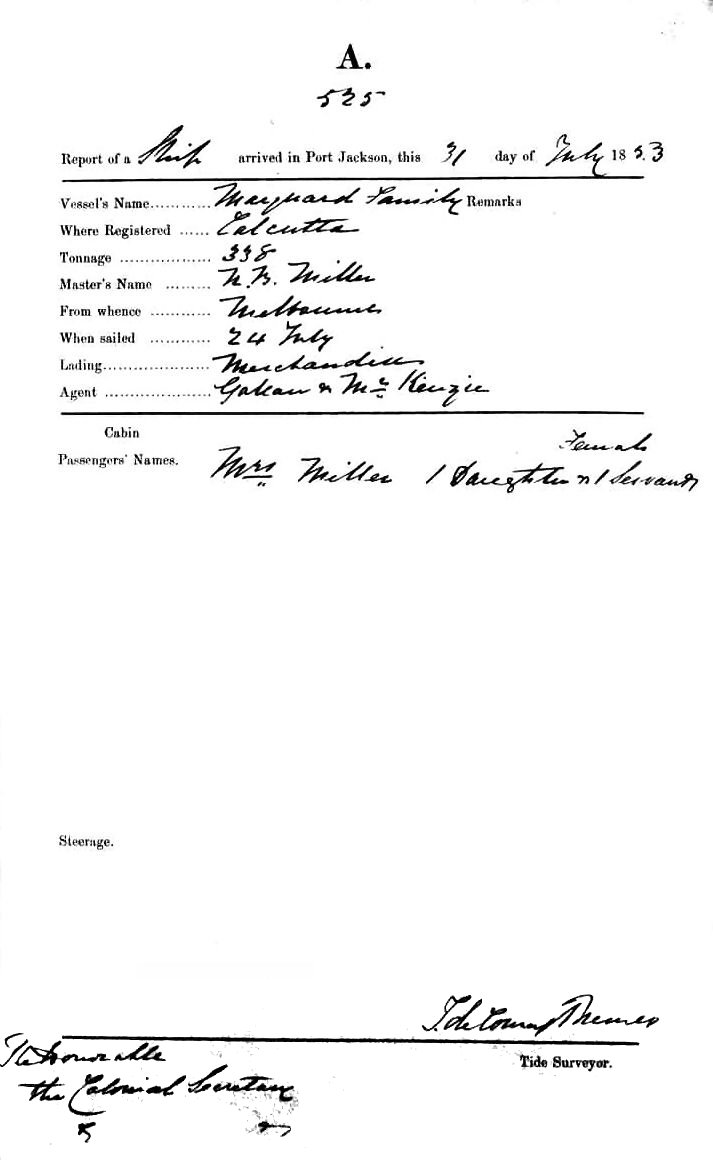 A.
525
Report of a Ship arrived in Port Jackson, this 31 day of July 1853
Vessel's Name........... Family Remarks
Where Registered ...... Calcutta
Tonnage .................. 338
Master's Name ......... N. B. Miller
From whence ............ Melbourne
When sailed ............ 24 July
Lading..................... Merchandise
Agent ..................... & Mc Kenzie
Cabin
Passengers' Names.
Female
Mrs Miller 1 Daughter & 1 Servant
Steerage.
Tide Surveyor.
The Honorable
the Colonial Secretary